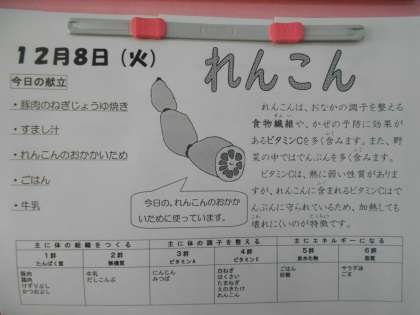 12月8日（火）
れんこん
今日の献立
・豚肉のねぎじょうゆ焼き
・すまし汁
・れんこんのおかかいため
・ごはん
・牛乳
れんこんは、おなかの調子を整える
食物繊維や、かぜの予防に効果が
あるビタミンCを多く含みます。また、野
菜の中ではでんぷんを多く含みます。
ビタミンCは、熱に弱い性質がありま
すが、れんこんに含まれるビタミンCはで
んぷんに守られているため、加熱しても
壊れにくいのが特徴です。
今日の、れんこんのおかか
いために使っています。
主に体の組織をつくる 主に体の調子を整える 主にエネルギーになる
1群 2群 3群 4群 5群 6群
たんぱく質 無機質 ビタミンA ビタミンC 炭水化物 脂質
豚肉 牛乳 にんじん 白ねぎ ごはん サラダ油
鶏肉 だしこんぶ みつば はくさい 砂糖 ごま
けずりぶし たまねぎ
かつおぶし えのきたけ
れんこん